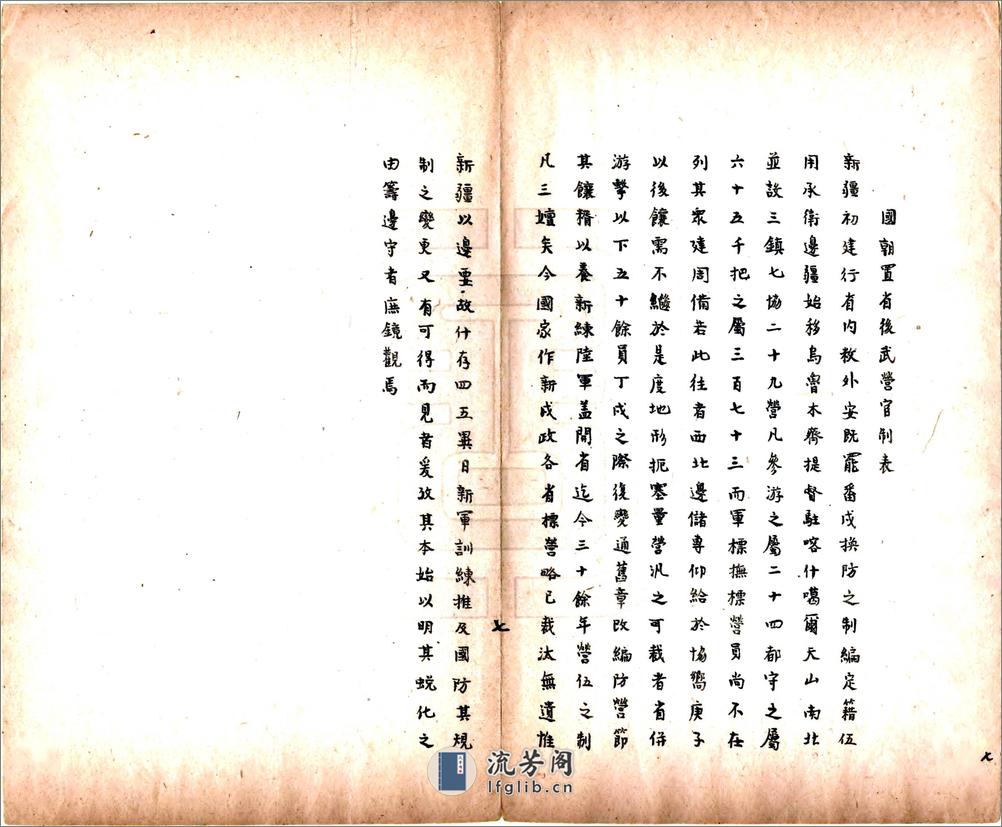 國朝置省後武營官制表
新疆初建行省內敉外安既罷番戍換防之制編定籍伍
用承衛邊疆始移烏魯木齊提督駐喀什噶爾天山南北
並設三鎮七協二十九營凡參游之屬二十四都守之屬
六十五千把之屬三百七十三而軍標撫標營員尚不在
列其眾建周備若此往者西北邊儲專仰給於協嚮庚子
以後饟需不繼於是度地形扼塞量營汛之可裁者省併
游擊以下五十餘員丁戊之際復變通舊章改編防營節
其饟糈以養新練陸軍蓋開省迄今三十餘年營伍之制
凡三嬗矣今國家作新戎政各省標營略已裁汰無遺惟
七
新疆以邊要故什存四五異日新軍訓練推及國防其規
制之變更又有可得而見者爰攷其本始以明其蛻化之
由籌邊守者庶鏡觀焉
七
流芳阁
lfglib.cn